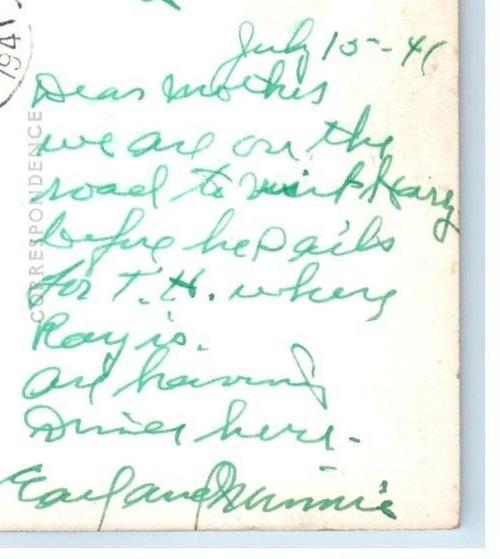 1941
July 15-41
Dear Mother
we are on the
road to visit Harry
before he sails
for T.H. where
Ray is.
are having
Dinner here.
Earl and Minnie
CORRESPONDENCE